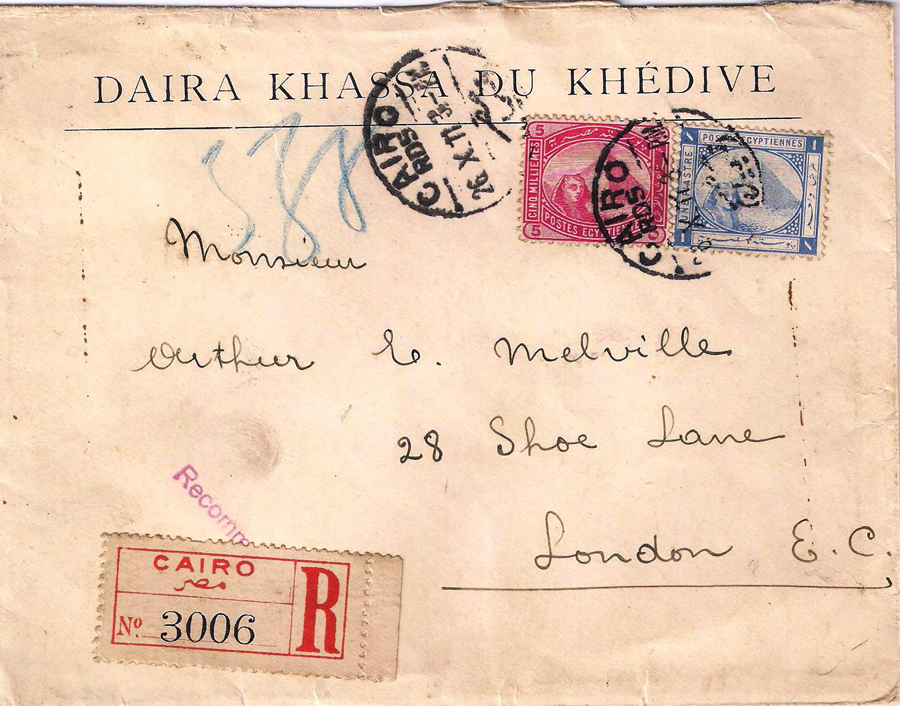 DAIRA KHASSA DU KHÉDIVE
CAIRO
RDS
26 X. 11
588
5 5
CINQ MILLIEMES
POSTES EGYPTIENNES
5
CAIRO
RDS
1 POSTES EGYPTIENNES 1
PIASTRE
1
Monsieur
Arthur E. Melville
28 Shoe Lane
London E. C.
Recomm
CAIRO
مصر
R
Nº. 3006